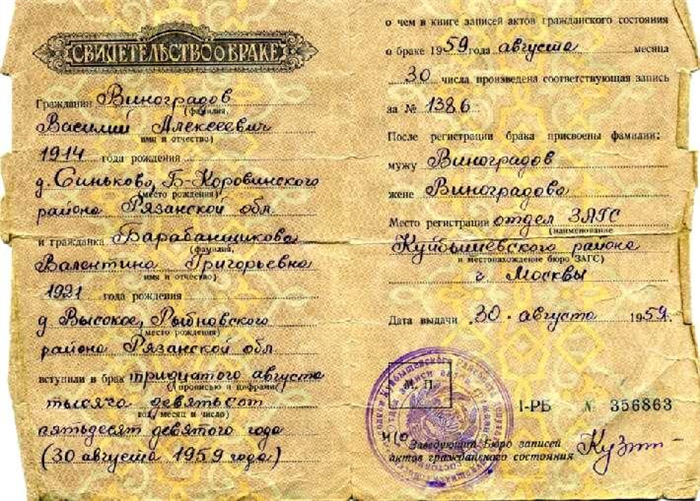 СВИДЕТЕЛЬСТВО О БРАКЕ
Гражданин Виноградов
(фамилия,
Василий Алексеевич
имя и отчество)
1914 года рождения
д. Синьково, Б-Коровинского
(место рождения)
района Рязанской обл.
и гражданка Барабанщикова
(фамилия,
Валентина Григорьевна
имя и отчество)
1921 года рождения
д Высокое, Рыбновского
(место рождения)
района Рязанской обл
вступили в брак тридцатого августа
(прописью и цифрами
тысяча девятьсот
год, месяц и число)
пятьдесят девятого года
(30 августа 1959 года)
о чем в книге записей актов гражданского состояния
о браке 1959 года августа месяца
30 числа произведена соответствующая запись
за № 1386
После регистрации брака присвоены фамилии:
мужу Виноградов
жене Виноградова
Место регистрации отдел ЗАГС
(наименование
Куйбышевского района
и местонахождение бюро ЗАГС)
г Москвы
Дата выдачи 30 августа 1959.
М. П.
I-РБ № 356863
Заведующий Бюро записей
актов гражданского состояния